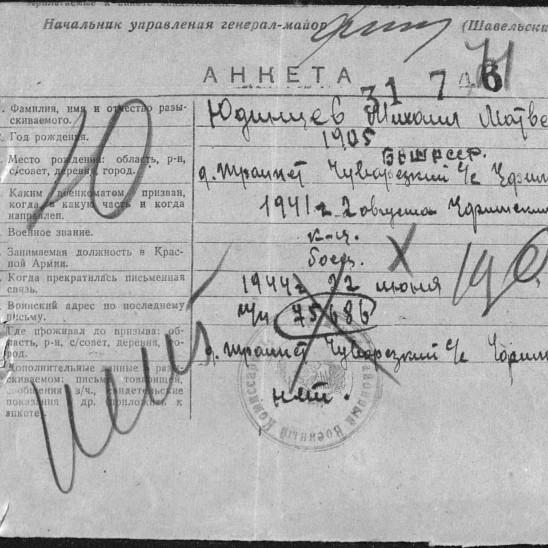 Начальник управления генерал-майор (Шавельски
АНКЕТА
31 7 46
. Фамилия, имя и отчество разы-
скиваемого.
Юдинцев Михаил Матве
Год рождения.
1905
Место рождения: область, р-н,
с/совет, деревня, город.
Башсср.
д. Трапет Чуварезкий с/с
Каким военкоматом призван,
когда, в какую часть и когда
направлен.
1941 г. 2 августа
Военное звание.
к-ц.
Занимаемая должность в Крас-
ной Армии.
боец.
Когда прекратилась письменная
связь.
1944 г. 22 июня
Воинский адрес по последнему
письму.
п/п 75686
Где проживал до призыва: об-
ласть, р-н, с/совет, деревня, го-
род.
д. Трапет Чуварезкий с/с
Дополнительные данные о разы-
скиваемом: письма товарищей,
сообщения в/ч, свидетельские
показания и др. приложить к
анкете.
Военный Комисса